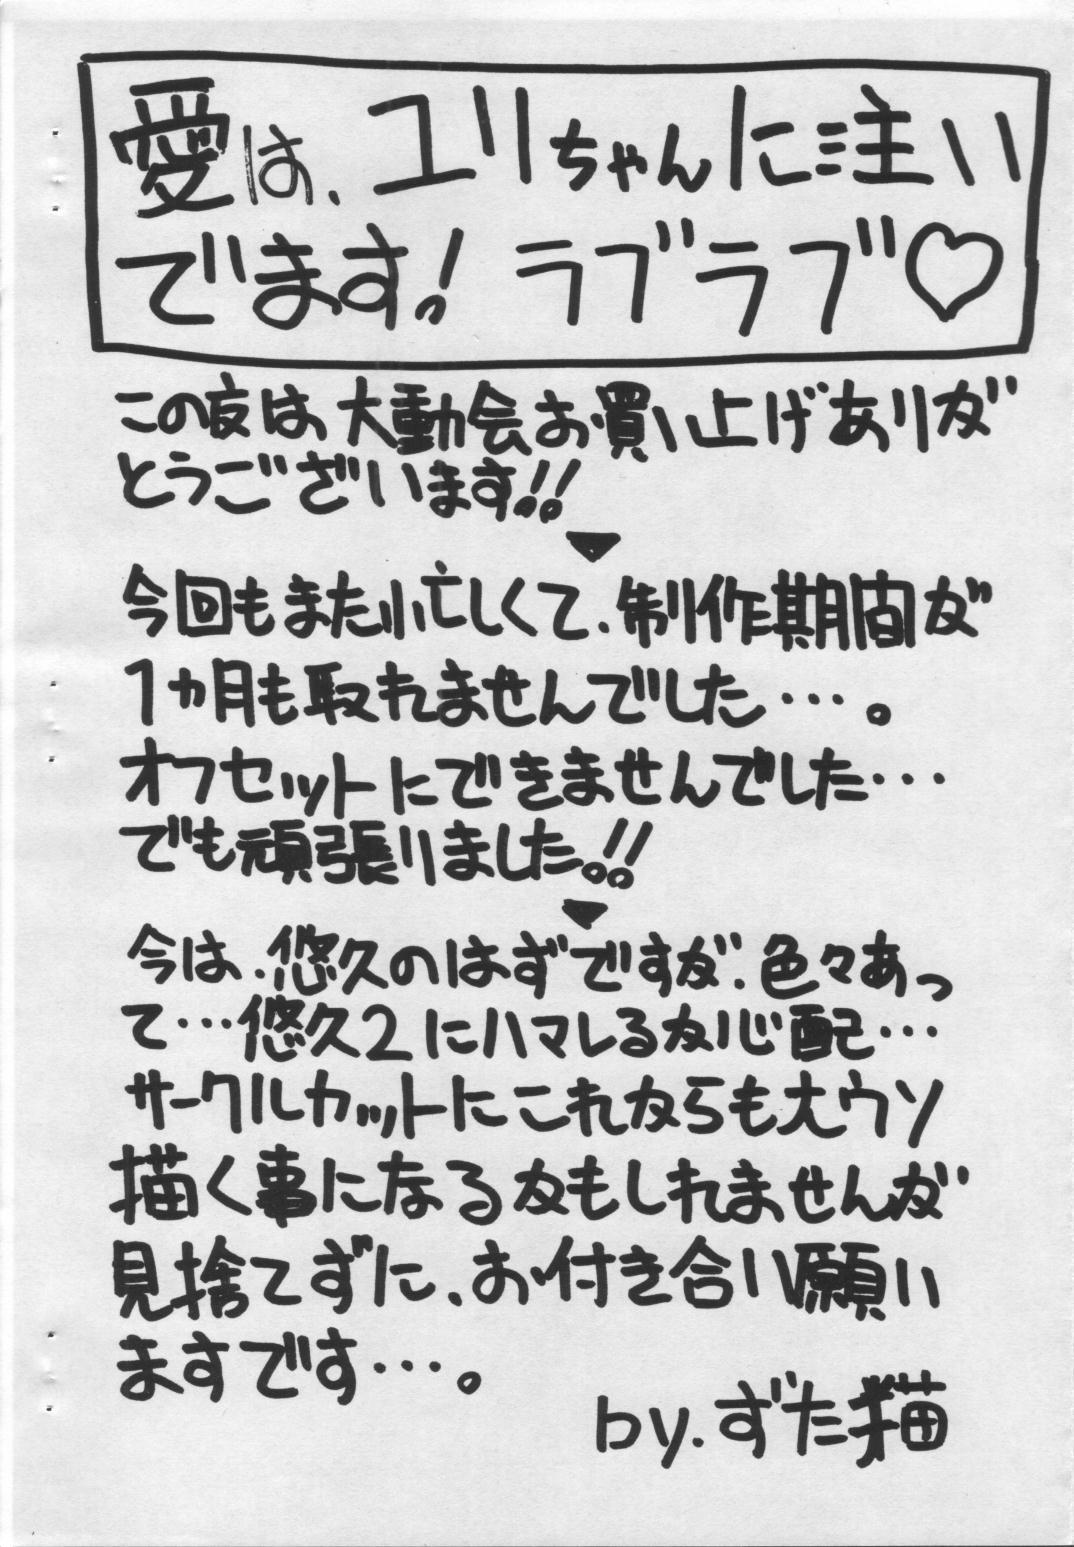 愛は、ユリちゃんに注い
でます！ラブラブ♡
この度は大動会お買い上げありが
とうございます!!
▼
今回もまた忙しくて、制作期間が
1ヵ月も取れませんでした…。
オフセットにできませんでした…
でも頑張りました!!
▼
今は、悠久のはずですが、色々あっ
て…悠久2にハマれるか心配…
サークルカットにこれからも大ウソ
描く事になるかもしれませんが
見捨てずに、お付き合い願い
ますです…。
by.ずた猫